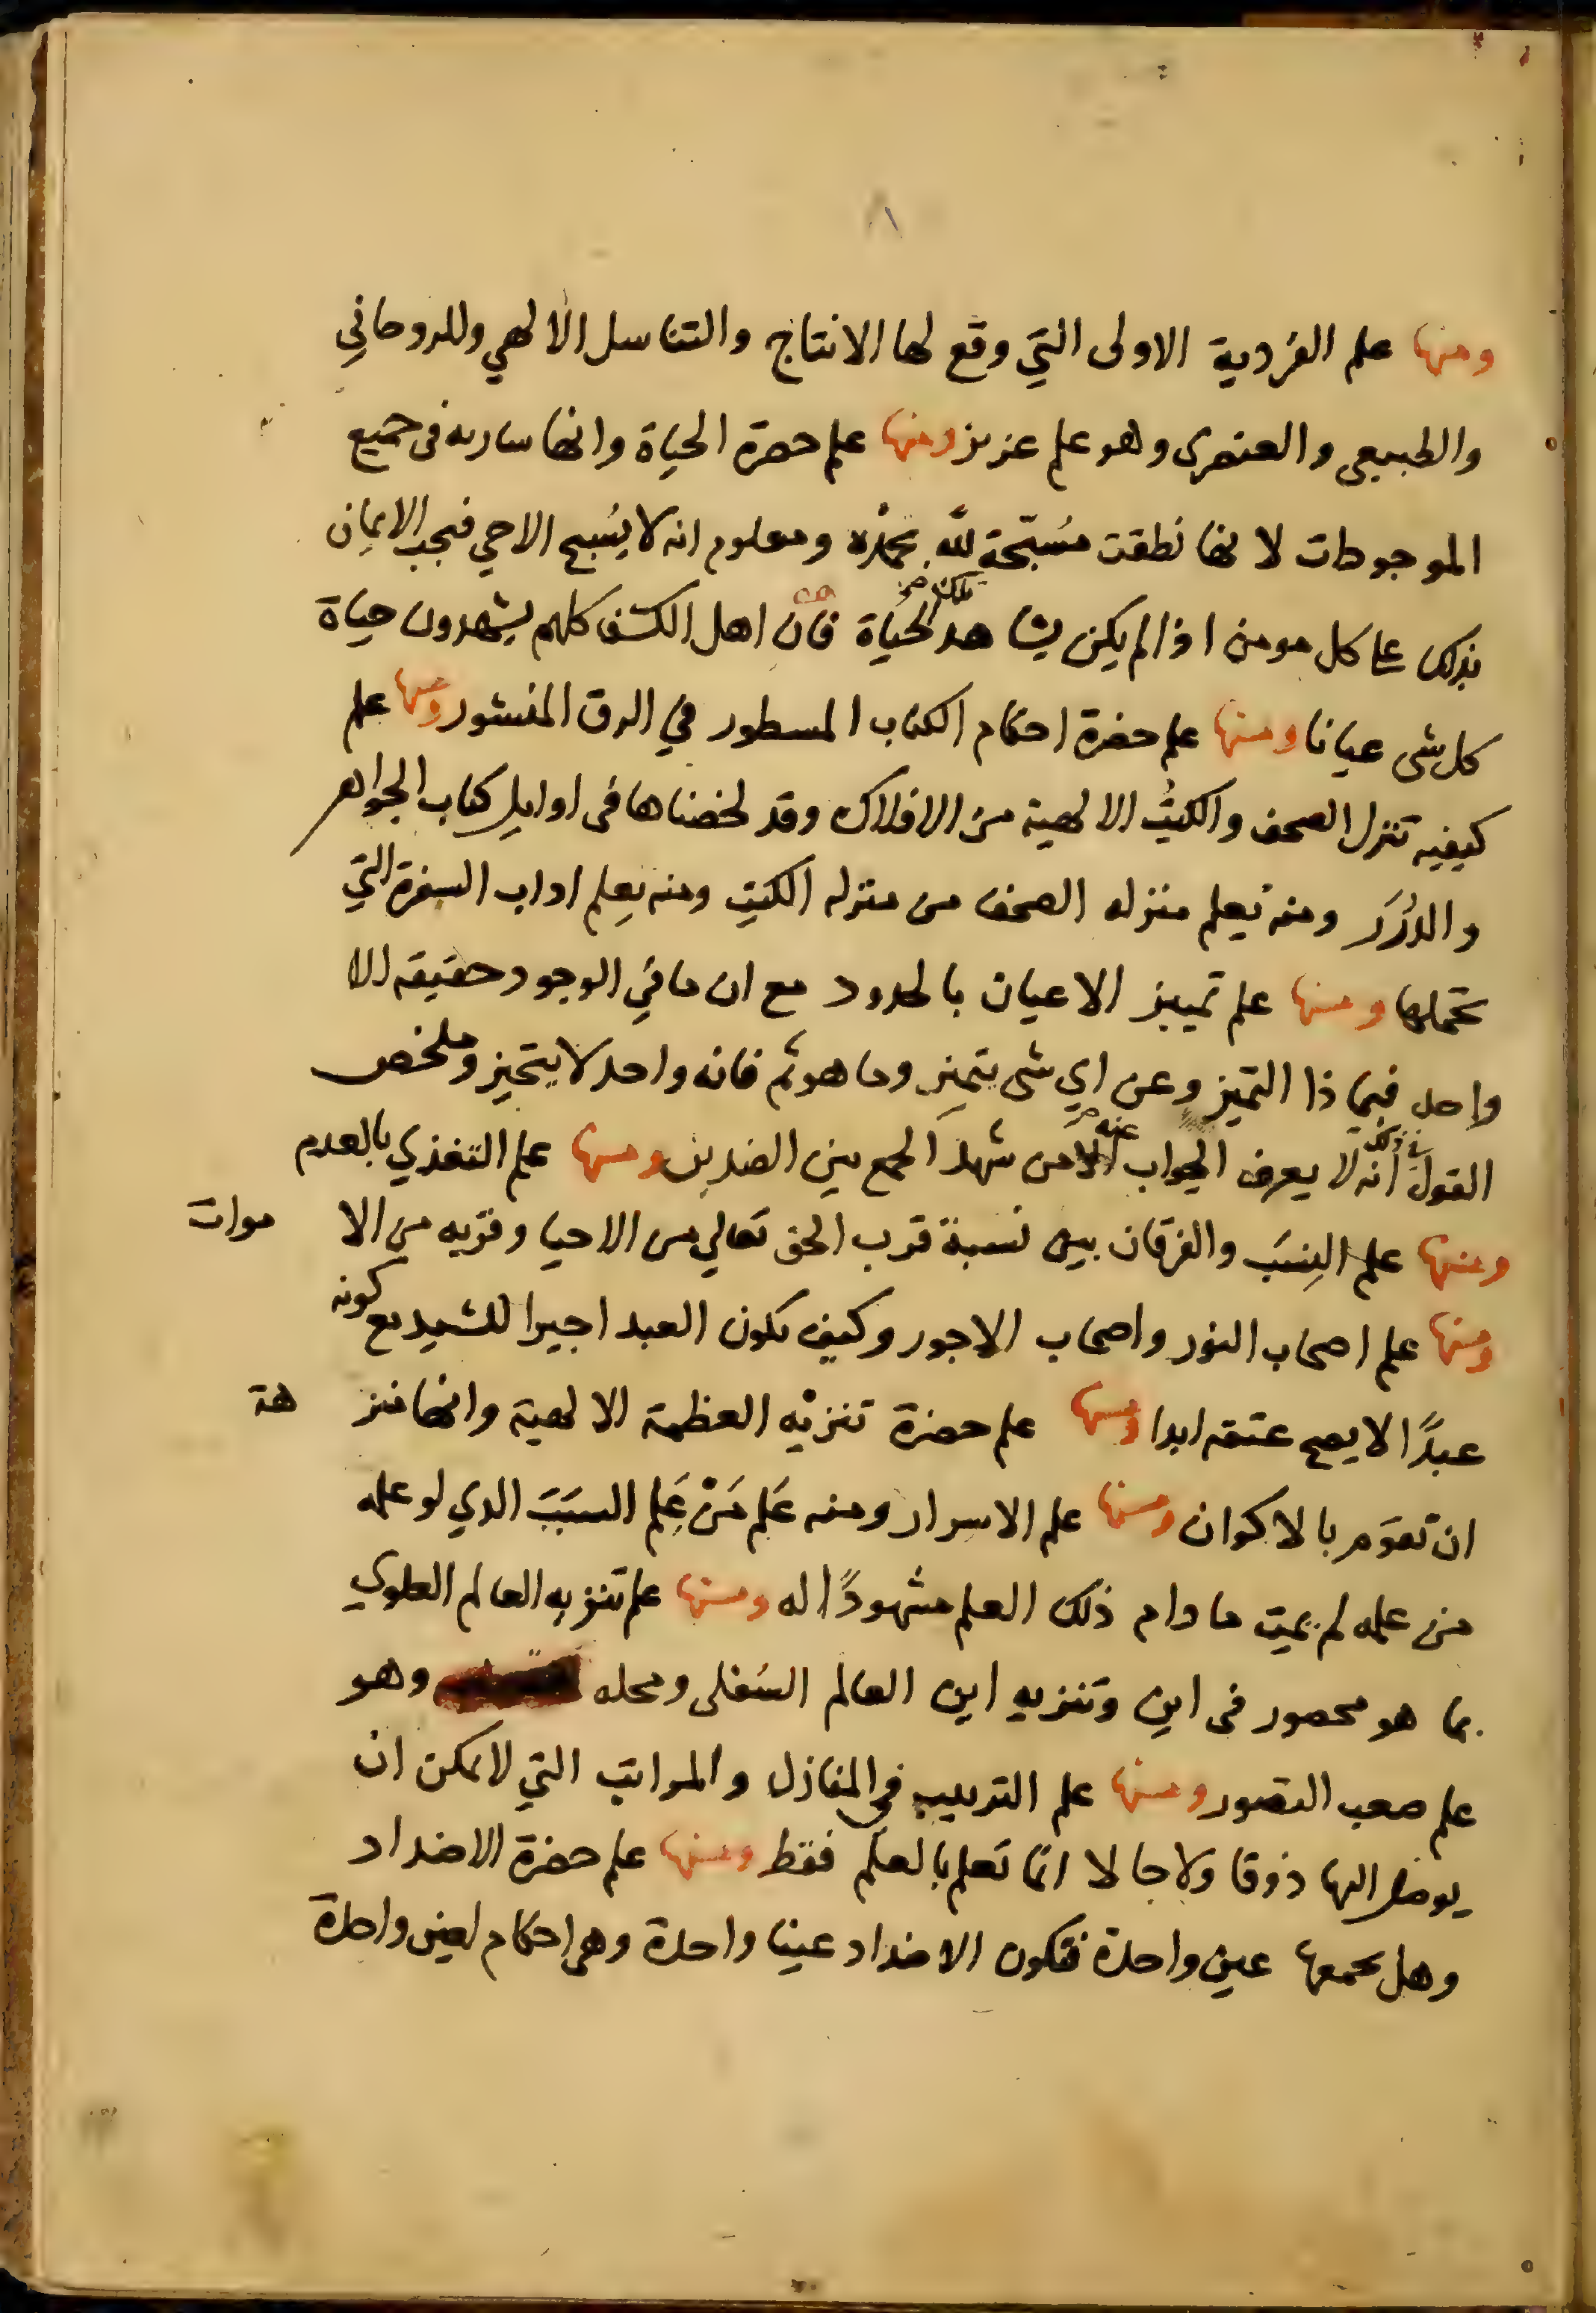 ومنها علم الفردية الاولى التي وقع لها الانتاج والتناسل الالهي وللروحاني
والطبيعي والعنصرى وهو علم عزيز ومنها علم حضرة الحياة وانها ساريه فى جميع
الموجودات لانها نطقت مُسَبّحة للّه بحمْده ومعلوم انه لا يُسَبح الاحي فيجب الايمان
بذلك على كل مومن اذا لم يكن يشاهد تلك الحياة فان اهل الكشف كلهم يشهدون حياة
كل شى عيانا ومنها علم حضرة احكام الكتاب المسطور في الرق المنشور ومنها علم
كيفيه تنزل الصحف والكتُب الالهية من الافلاك وقد لخصناها فى اوايل كتاب الجواهر
والدُرَر ومنه يعلم منزله الصحف من منزله الكتب ومنه يعلم اداب السفرة التي
تحملها ومنها علم تمييز الاعيان بالحدود مع ان ما في الوجود حقيقه الا
واحد فبما ذا التميز وعن اي شى يتميز وما هو ثم فانه واحد لا يتحيز وملخص
القول فى ذلك انه لا يعرف الجواب عنه الامن شهد الجمع بين الضدين ومنها علم التغذي بالعدم
ومنها علم النِسَب والفرقان بين نسبة قرب الحق تعالي من الاحيا وقربه من الا موات
ومنها علم اصحاب النور واصحاب الاجور وكيف يكون العبد اجيرا للسيد مع كونه
عبدًا لا يصح عتقه ابدا ومنها علم حضرة تنزيْه العظمة الالهية وانها منز هة
ان تقوم بالاكوان ومنها علم الاسرار ومنه عَلم مَنْ عَلِم السبَبَ الدي لو علمه
من علمه لم يمت ما دام ذلك العلم مشهودًا له ومنها علم تنزيه العالم العلوي
بما هو محصور فى اين وتنزيه اين العالم السُفلى ومحله وهو
علم صعب التصور ومنها علم الترتيب في المنازل والمراتب التي لا يمكن ان
يوصل اليها ذوقا ولا حالا انما تعلم بالعلم فقط ومنها علم حضرة الاضداد
وهل يجمعها عين واحدة فتكون الاضداد عينا واحدة وهى احكام لعين واحدة